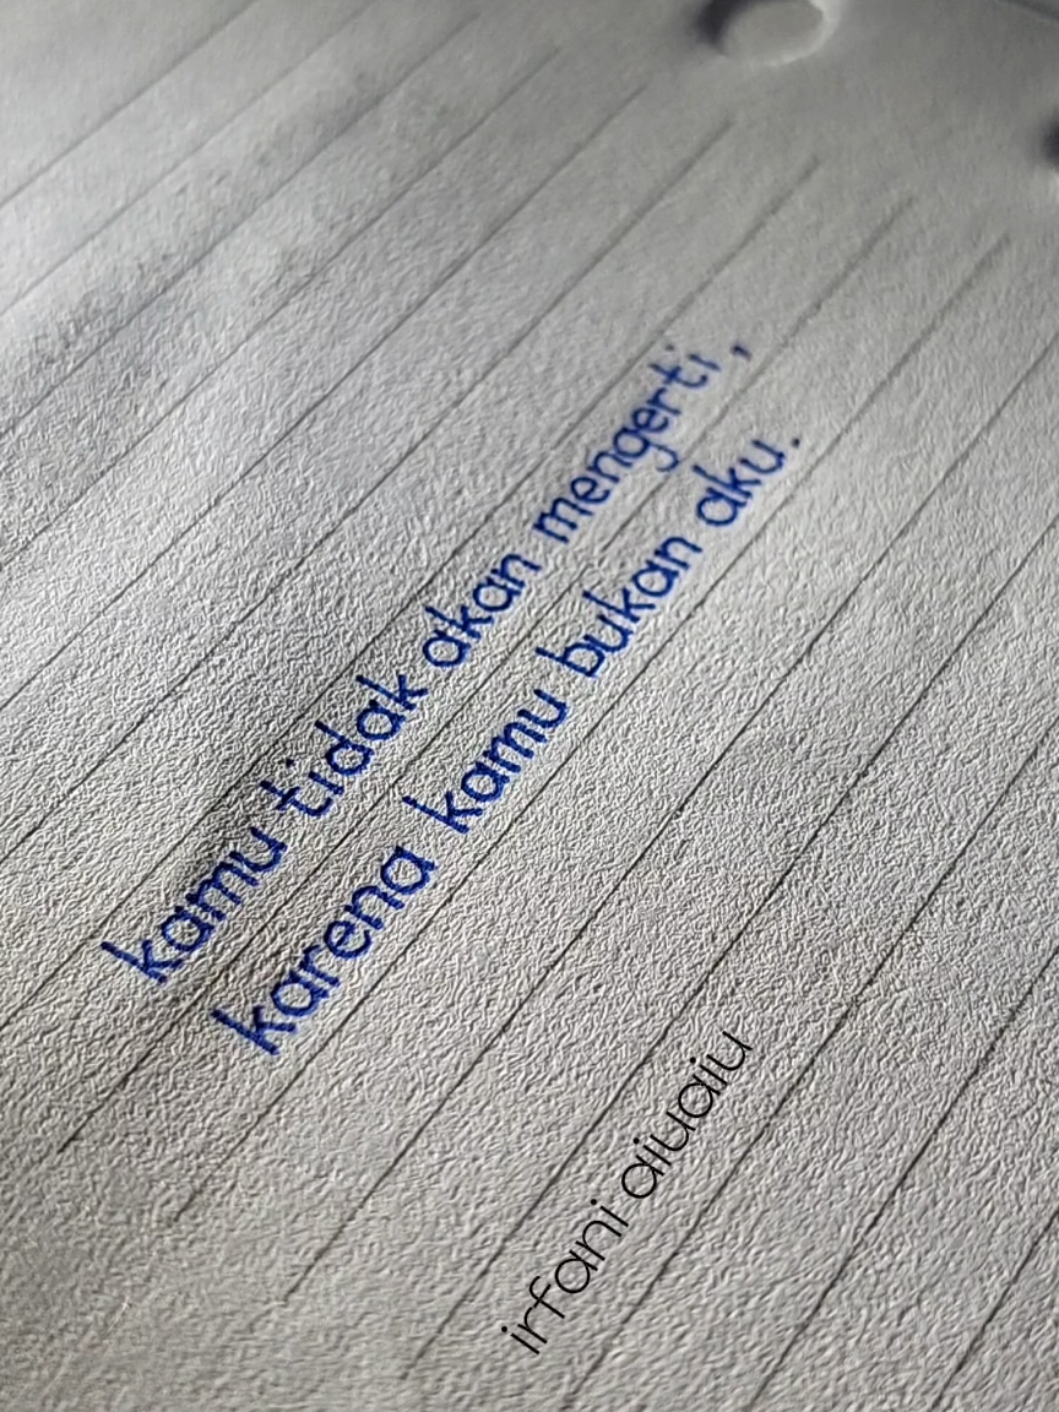 kamu tidak akan mengerti,
karena kamu bukan aku.
irfani aiuaiu